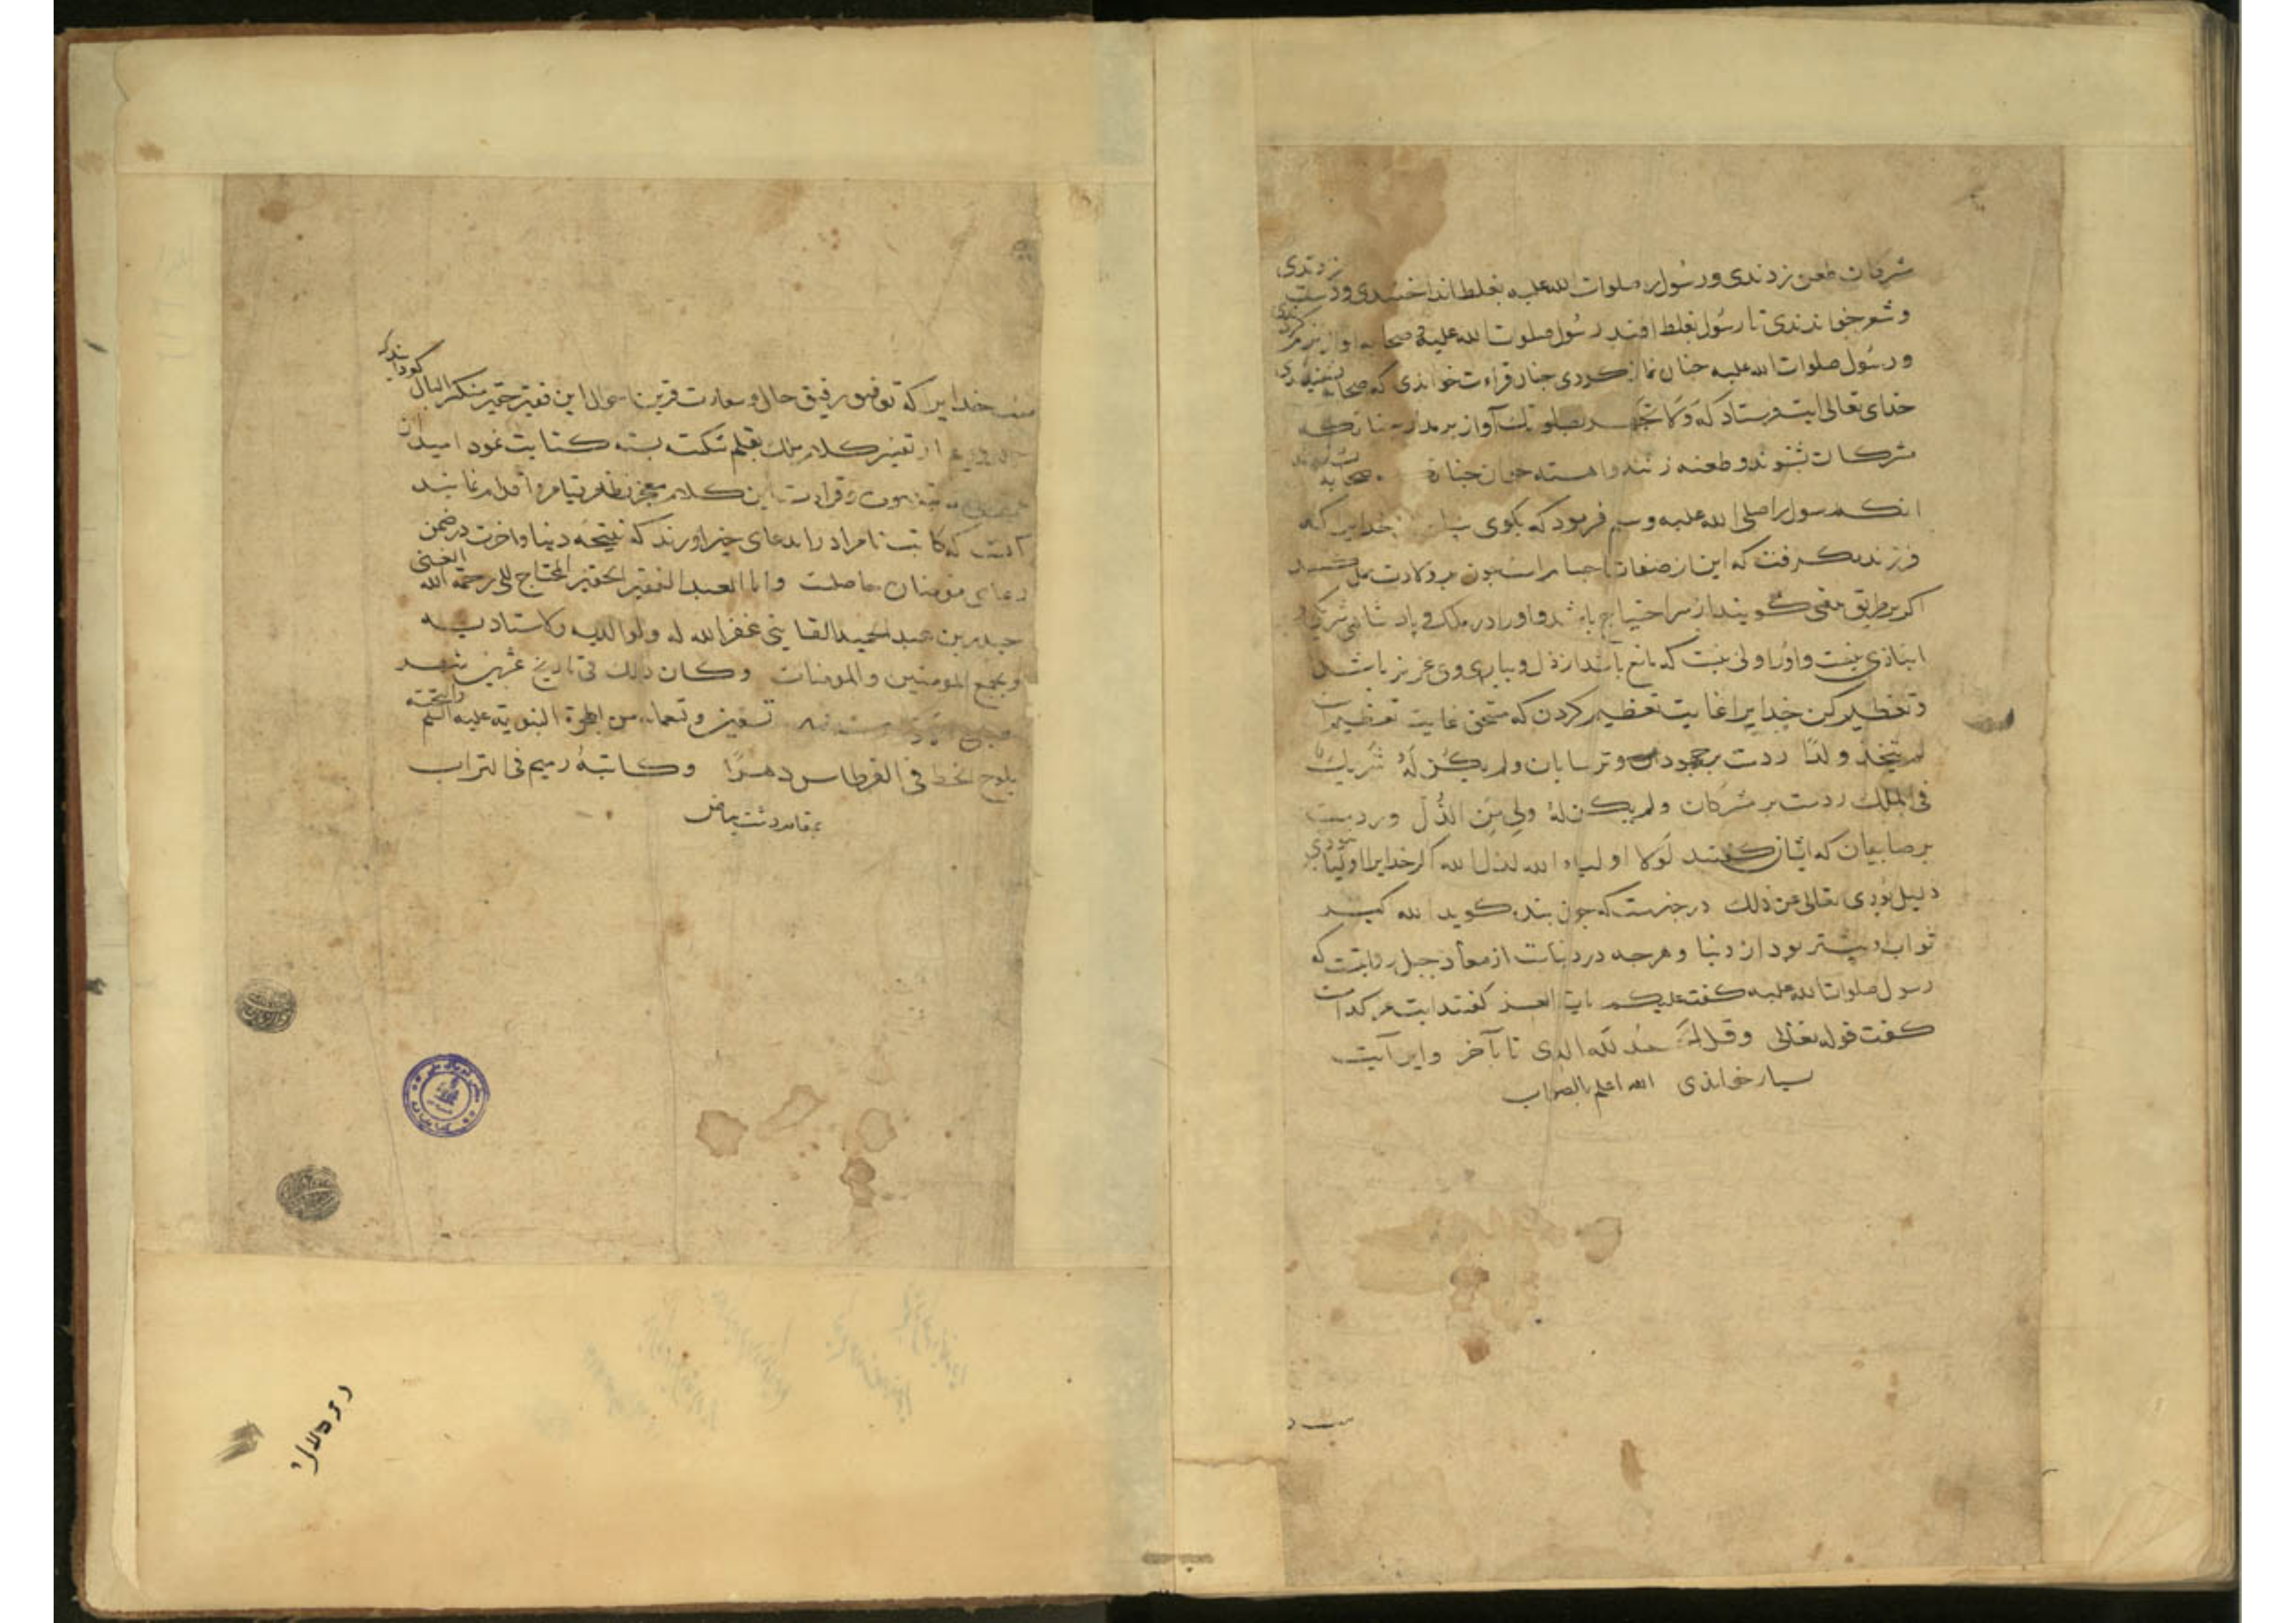 مشرکان طعن زدندی و رسول را صلوات الله علیه بغلط انداختندی و دست زدندی
و شعر خواندندی تا رسول بغلط افتد رسول صلوات الله علیه و صحابه آواز نرم کردندی
و رسول صلوات الله علیه جنان نماز کردی جنان قراءت خواندی که صحابه نشنیدندی
خدای تعالی ایت فرستاد که وَلَا تَجْهَر بصلوتک آواز بر مدار جنانکه
مشرکان بشنوند و طعنه زنند و اهسته مخوان جنانک صحابه نشنوند
انکه رسول را صلی الله علیه وسلم فرمود که بکوی خدایرا که
فرزند نکرفت که این از صفات اجسام است جون ولادت
اکر بر طریق تبنی کویند از سر احتیاج باشد و اورا در ملک و پادشاهی شریک
انبازی نیست و اورا ولی نیست که مانع باشد از ذل و بیاری وی عزیز باشد
و تعظیم کن خدایرا غایت تعظیم کردن که مستحق غایت تعظیم است
لم یتخذ ولدًا ردست بر جهودان و ترسایان ولم یکن لَهُ شَریک
فی الملک ردست بر مشرکان ولم یکن لهُ ولی مِنَ الذُّل و ردست
بر صابیان که ایشان کفتند لَولا اولیاء الله لذل الله اکر خدایرا اولیا نبودی
ذلیل بودی تعالی عن ذلک در خبرست که جون بنده کوید الله کبر
ثواب بیشتر بود از دنیا و هرجه در دنیاست از معاذ جبل روایتست که
رسول صلوات الله علیه کفت علیکم بایة العز کفتند ایت عز کدامست
کفت قوله تعالی وقل الْحَمْدُ لله الذی تا بآخر و این آیت
بسیار خواندی الله اعلم بالصواب
منت خدایرا که توفیق رفیق حال و سعادت قرین احوال این فقیر حقیر منکسر البال کردانید که
از تفسیر کلام ملک بقلم شکسته بسته کتابت نمود امید
قراءت این کلام معجز نظام قیام و اقدام نمایند
آنست که کاتب نامراد را بدعای خیر اورند که نتیجه دنیا و اخرت در ضمن
دعای مومنان حاصلست وانا العبد الفقیر الحقیر المحتاج الی رحمة الله الغنی
حیدر بن عبد الحمید القاینی غفر الله له ولوالدیه ولاستادیه
وبجمیع المومنین والمومنات وکان ذلک فی تاریخ عشرین شهر
سنه تسعین وتسعمایه من الهجرة النبویه علیه السلم والتحیه
یلوح الخط فی القرطاس دهرًا وکاتبهُ رمیم فی التراب
بمقام دشت بیاض